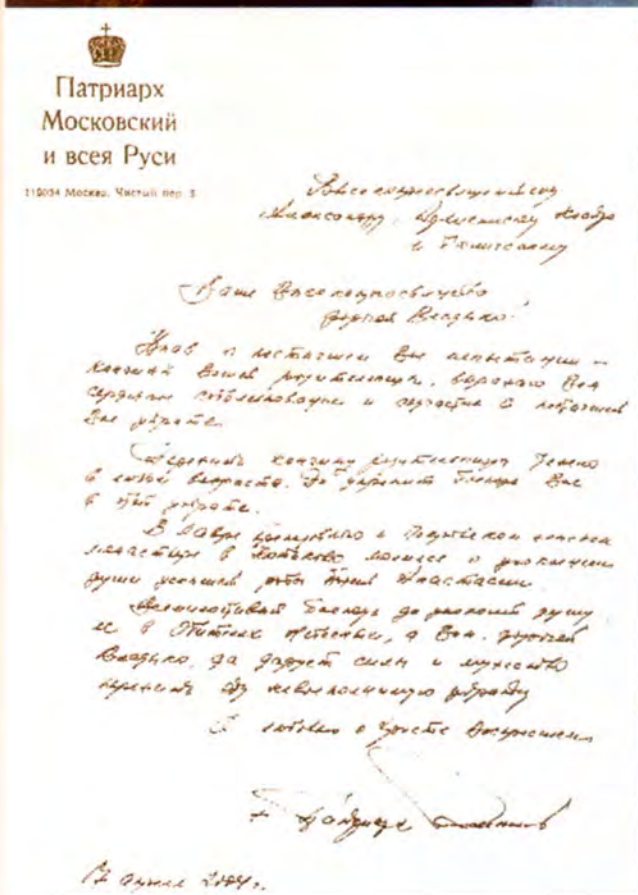 Патриарх
Московский
и всея Руси
119034 Москва, Чистый пер. 5
Высокопреосвященному
Александру, Архиепископу
и Галичскому
Ваше Высокопреосвященство
дорогой Владыко!
Узнав о постигшем Вас испытании –
кончине Вашей родительницы, выражаю Вам
сердечное соболезнование и сочувствие в постигшей
Вас утрате.
кончину родительницы тяжело
в любом возрасте. Да укрепит Господь Вас
в этой утрате.
В Лавре и Покровском женском
монастыре в Хотьково молимся о упокоении
души усопшей рабы Анастасии
Всемилостивый Господь да упокоит душу
ее в Обителях Небесных, а Вам, дорогой
Владыко, да дарует силы и мужество
перенести эту невосполнимую утрату
С любовью о Христе Воскресшем
+ Патриарх Алексий
17 апреля 2004 г.